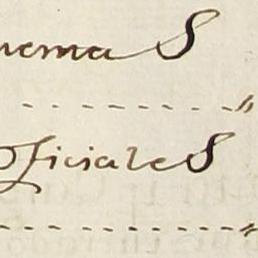 uema S
OficialeS